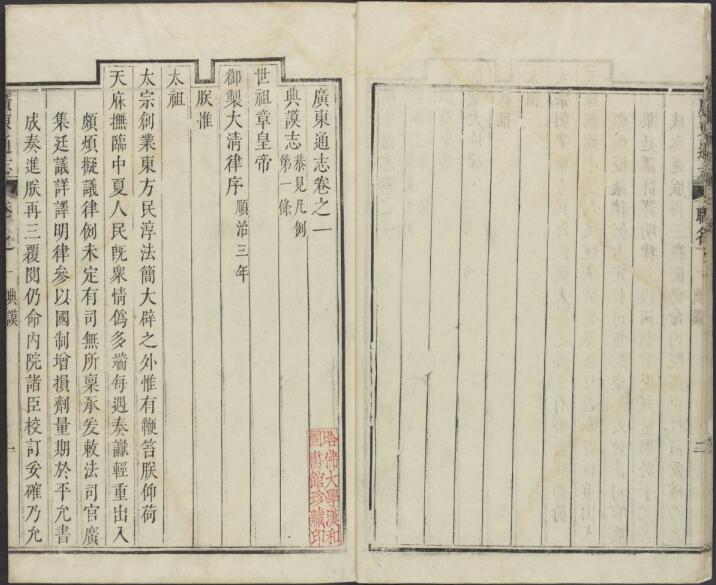 廣東通志卷之一
典謨志 恭見凡例第一條
世祖章皇帝
御製大清律序 順治三年
朕惟
太祖
太宗創業東方民淳法簡大辟之外惟有鞭笞朕仰荷
天庥撫臨中夏人民旣衆情僞多端每遇奏讞輕重出入
頗煩擬議律例未定有司無所稟承爰敕法司官廣
集廷議詳譯明律參以國制增損劑量期於平允書
成奏進朕再三覆閱仍命內院諸臣校訂妥確乃允
廣東通志 典謨 一
哈佛大學漢和圖書館珍藏印
廣東通志 職名